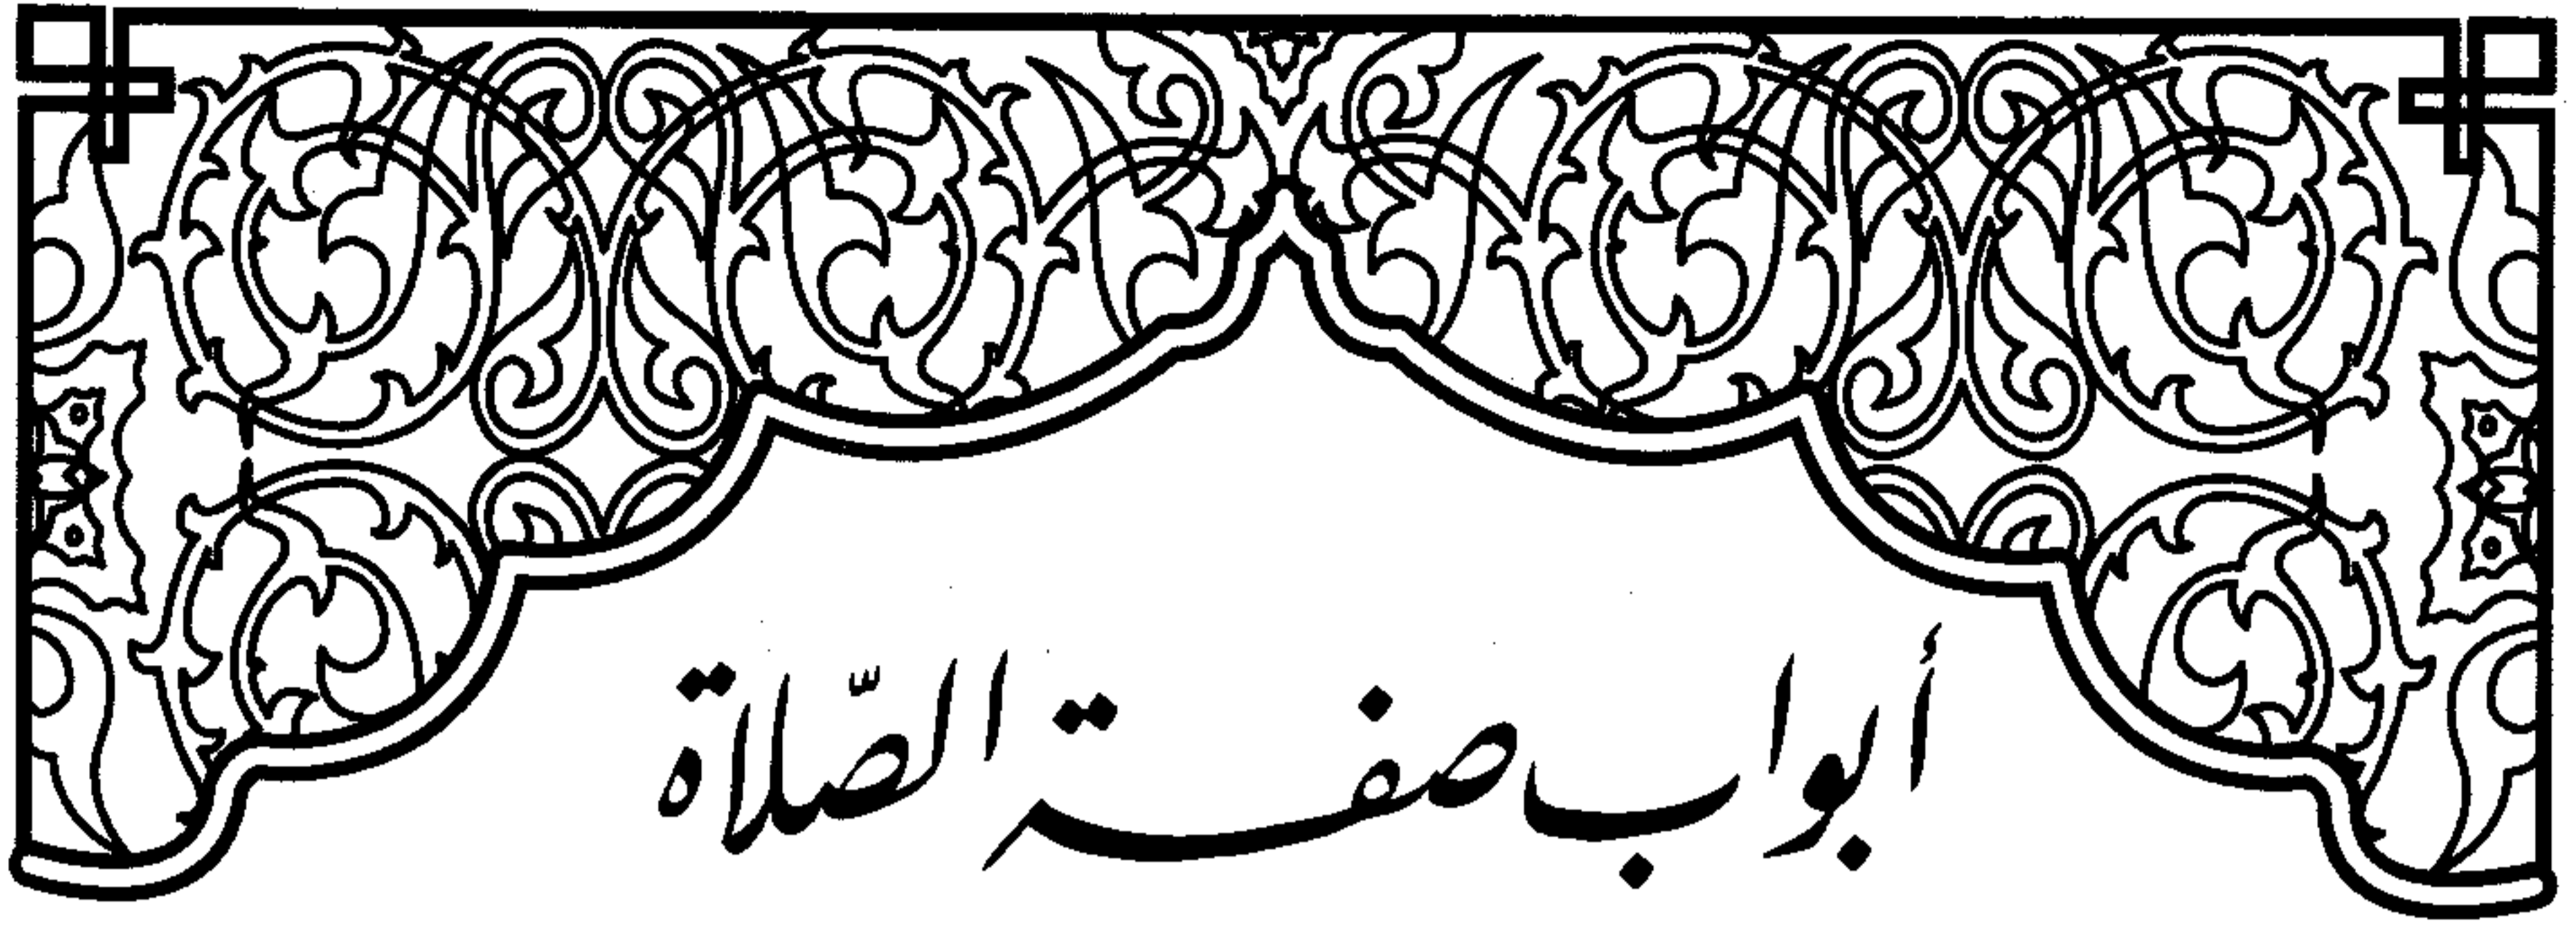 أبواب صفة الصّلاة